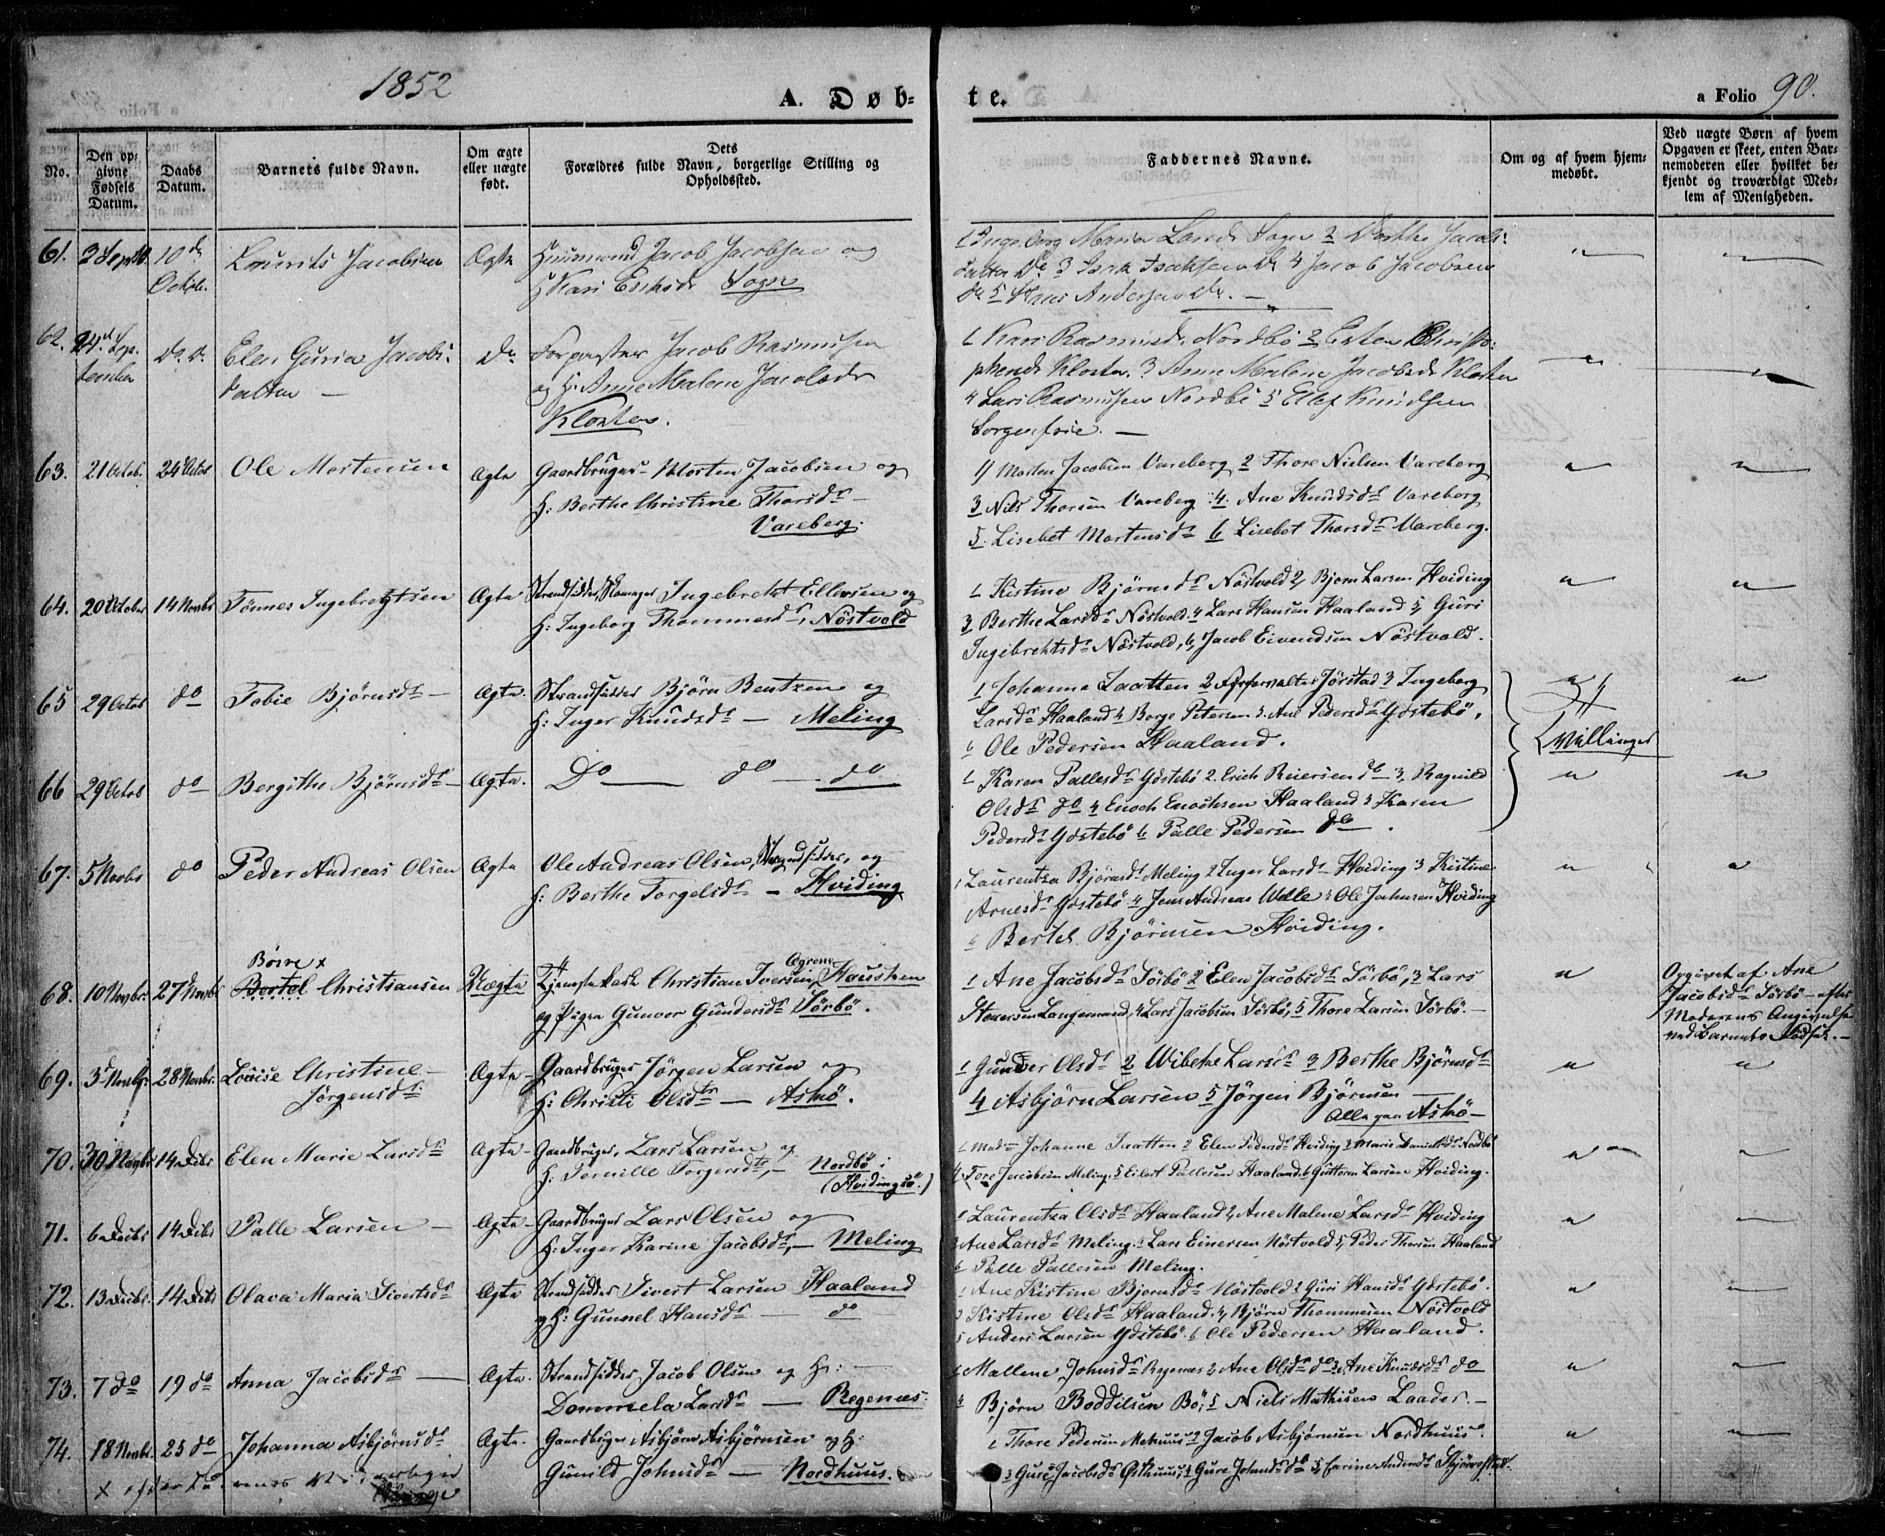 1852
A. Døb=
te.
a Folio 90.
No.
Den op=
givne
Fødsels
Datum.
Daabs
Datum.
Barnets fulde Navn.
Om ægte
eller uægte
født.
Dets
Forældres fulde Navn, borgerlige Stilling og
Opholdssted.
Faddernes Navne.
Om og af hvem hjem=
medøbt.
Ved uægte Børn af hvem
Opgaven er skeet, enten Bar=
nemoderen eller hvilket be=
kjendt og troværdigt Med=
lem af Menigheden.
61. 2 Septb. 10 de Laurits Jacobsen Ægte Huusmand Jacob Jacobsen og
Octobr. H Kari Sogn
1 Ingeborg Maria Sogn 2 Berthe Jacobs=
datter Do 3 Isaksen Do 4 Jacob Jacobsen
Do 5 Hans Andersen Do. —
62. 24 d Sep= Do. Do. Elen Guria Jacobs= Do Jacob Rasmusen
tember datter — og H. Anne Malene Jacobsdr
Kloster.
1 Kari Rasmusdr. Nordbö 2 Christo=
phersdr Kloster. 3 Anne Malene Jacobsdr Kloster
4 Lars Rasmusen Nordbö 5 Ellef Knudsen
Sorgenfrie. —
63. 21 Octob. 24 Octob Ole Mortensen Ægte Gaardbruger Morten Jacobsen og
H: Berthe Christine Thorsdr —
Vareberg.
1) Morten Jacobsen Vareberg 2 Thore Nielsen Vareberg
3 Nils Thorsen Vareberg 4. Ane Knudsdr Vareberg
5. Lisebet Mortensdr 6 Lisebet Thorsdr Vareberg.
64. 20 October 14 Novbr Tönnes Ingebregtsen Ægte Strandsidder, Ingebreht Ellevsen og
H: Ingeborg Thommesdr, Nöstvold
1 Kistine Björnsdr Nöstvold 2, Bjorn Larsen Hviding
3 Berthe Larsdr Nöstvold 4 Lars Hansen Haaland 5, Guri
Ingebrehtsdr Nöstvold, 6, Jacob Eivendsen Nöstvold.
65 29 Octob do Tobie Björnsdr — Ægte. Strandsidder Björn Bentzen og
H: Inger Knudsdr — Meling
1 Johanne Taatten 2 Jörstad 3 Ingeborg
Larsdr Haaland 4 Borge Petersen 5. Ane Pedersdr Ydstebö,
6 Ole Pedersen Haaland.
Tvillinger
66 29 Octob do Bergithe Björnsdr — Ægte. Do — do — do
1 Karen Pallesdr Ydstebö 2. Erich Reiersen do — 3. Ragnild
Olsdr do 4 Enoch Enochsen Haaland 5 Karen
Pedersdr Ydstebö 6 Palle Pedersen do — .
67. 5 Novbr do Peder Andreas Olsen Ægte Ole Andreas Olsen, Strandsidder, og
H: Berthe Torgelsdr — Hviding
1 Laurentza Björnsdr Meling 2 Inger Larsdr Hviding 3 Kistine
Arnesdr Ydstebö 4 Jens Andreas Welle 5 Ole Johnsen Hviding
6 Bertel Björnsen Hviding.
Börre x
68. 10 Novbr 27 Novbr Bertel Christiansen Uægte Tjenestekarl Christian Iversen, Hausken
og Pigen Gunvor Gundersdr Sörbö.
1 Ane Jacobsdr Sörbö 2 Elen Jacobsdr Sörbö, 3 Lars
4 Lars Jacobsen Sörbö, 5 Thore Larsen Sörbö. —
Opgivet af Ane
Jacobsdr Sörbö — efter
Moderens Angivelse
ved Barnets Födsel. —
69. 3 Novbr 28 Novbr. Lovise Christine — Ægte — Gaardbruger Jörgen Larsen og
Jörgensdr H: Christi Olsdtr — Askö.
1 Gunder Olsdr 2 Wibeke Larsdr 3 Berthe Björnsdr
4 Asbjörn Larsen 5 Jörgen Björnsen —
Alle paa Askö —
70. 30 Novbr 14 Decbr Elen Marie Larsdr Ægte — Gaardbruger, Lars Larsen og
H: Pernille Torgersdtr, — Nordbö i
(Hvidingsö.)
1 Madm Johanne Taatten 2 Elen Pedersdr Hviding 3 Marie Danielsdr Nordbö
4. Tore Jacobsen Meling, 5 Eilert Pallesen Haaland 6 Guttorm Larsen Hviding.
71. 6 Decbr 14 Decbr Palle Larsen — Ægte — Gaardbruger Lars Olsen og
H: Inger Karine Jacobsdr, — Meling
1 Laurentza Olsdr Haaland 2, Ane Malene Larsdr Hviding
3 Ane Larsdr Meling 4 Lars Einersen Nöstvold 5, Peder Thorsen Haaland
6 Palle Pallesen Meling.
72. 13 Decbr. 14 Decb Olava Maria Sivertsdr Ægte Strandsidder Sivert Larsen Haaland
og H: Gunnel Hansdr — do
1 Ane Kistine Bjornsdr Nöstvold 2 Guri Hansdr Ydstebö.
3 Kistine Olsdr Haaland. 4, Björn Thommesen Nöstvold
5 Anders Larsen Ydstebö. 6 Ole Pedersen Haaland.
73. 7 do 19 do Anna Jacobsdr — Ægte. Strandsidder Jacob Olsen og H: —
Larsdr — Regenæs.
1 Mallene Johnsdr Regenæs 2, Ane Olsdr do 3, Ane Knudsdr do
4 Björn Boddelsen Bö, 5 Niels Mathisen Laader. —
74. 18 Novbr. 25 do Johanna Asbjörnsdr Ægte. Gaardbruger Asbjörn Asbjörnsen og H:
Gunild Johnsdr — Nordhuus.
1 Thore Pedersen 2 Jacob Asbjörnsen Nordhuus.
3 Guro Jacobsdr 4 Gure Johnsdr do 5, Andersdr
x efter